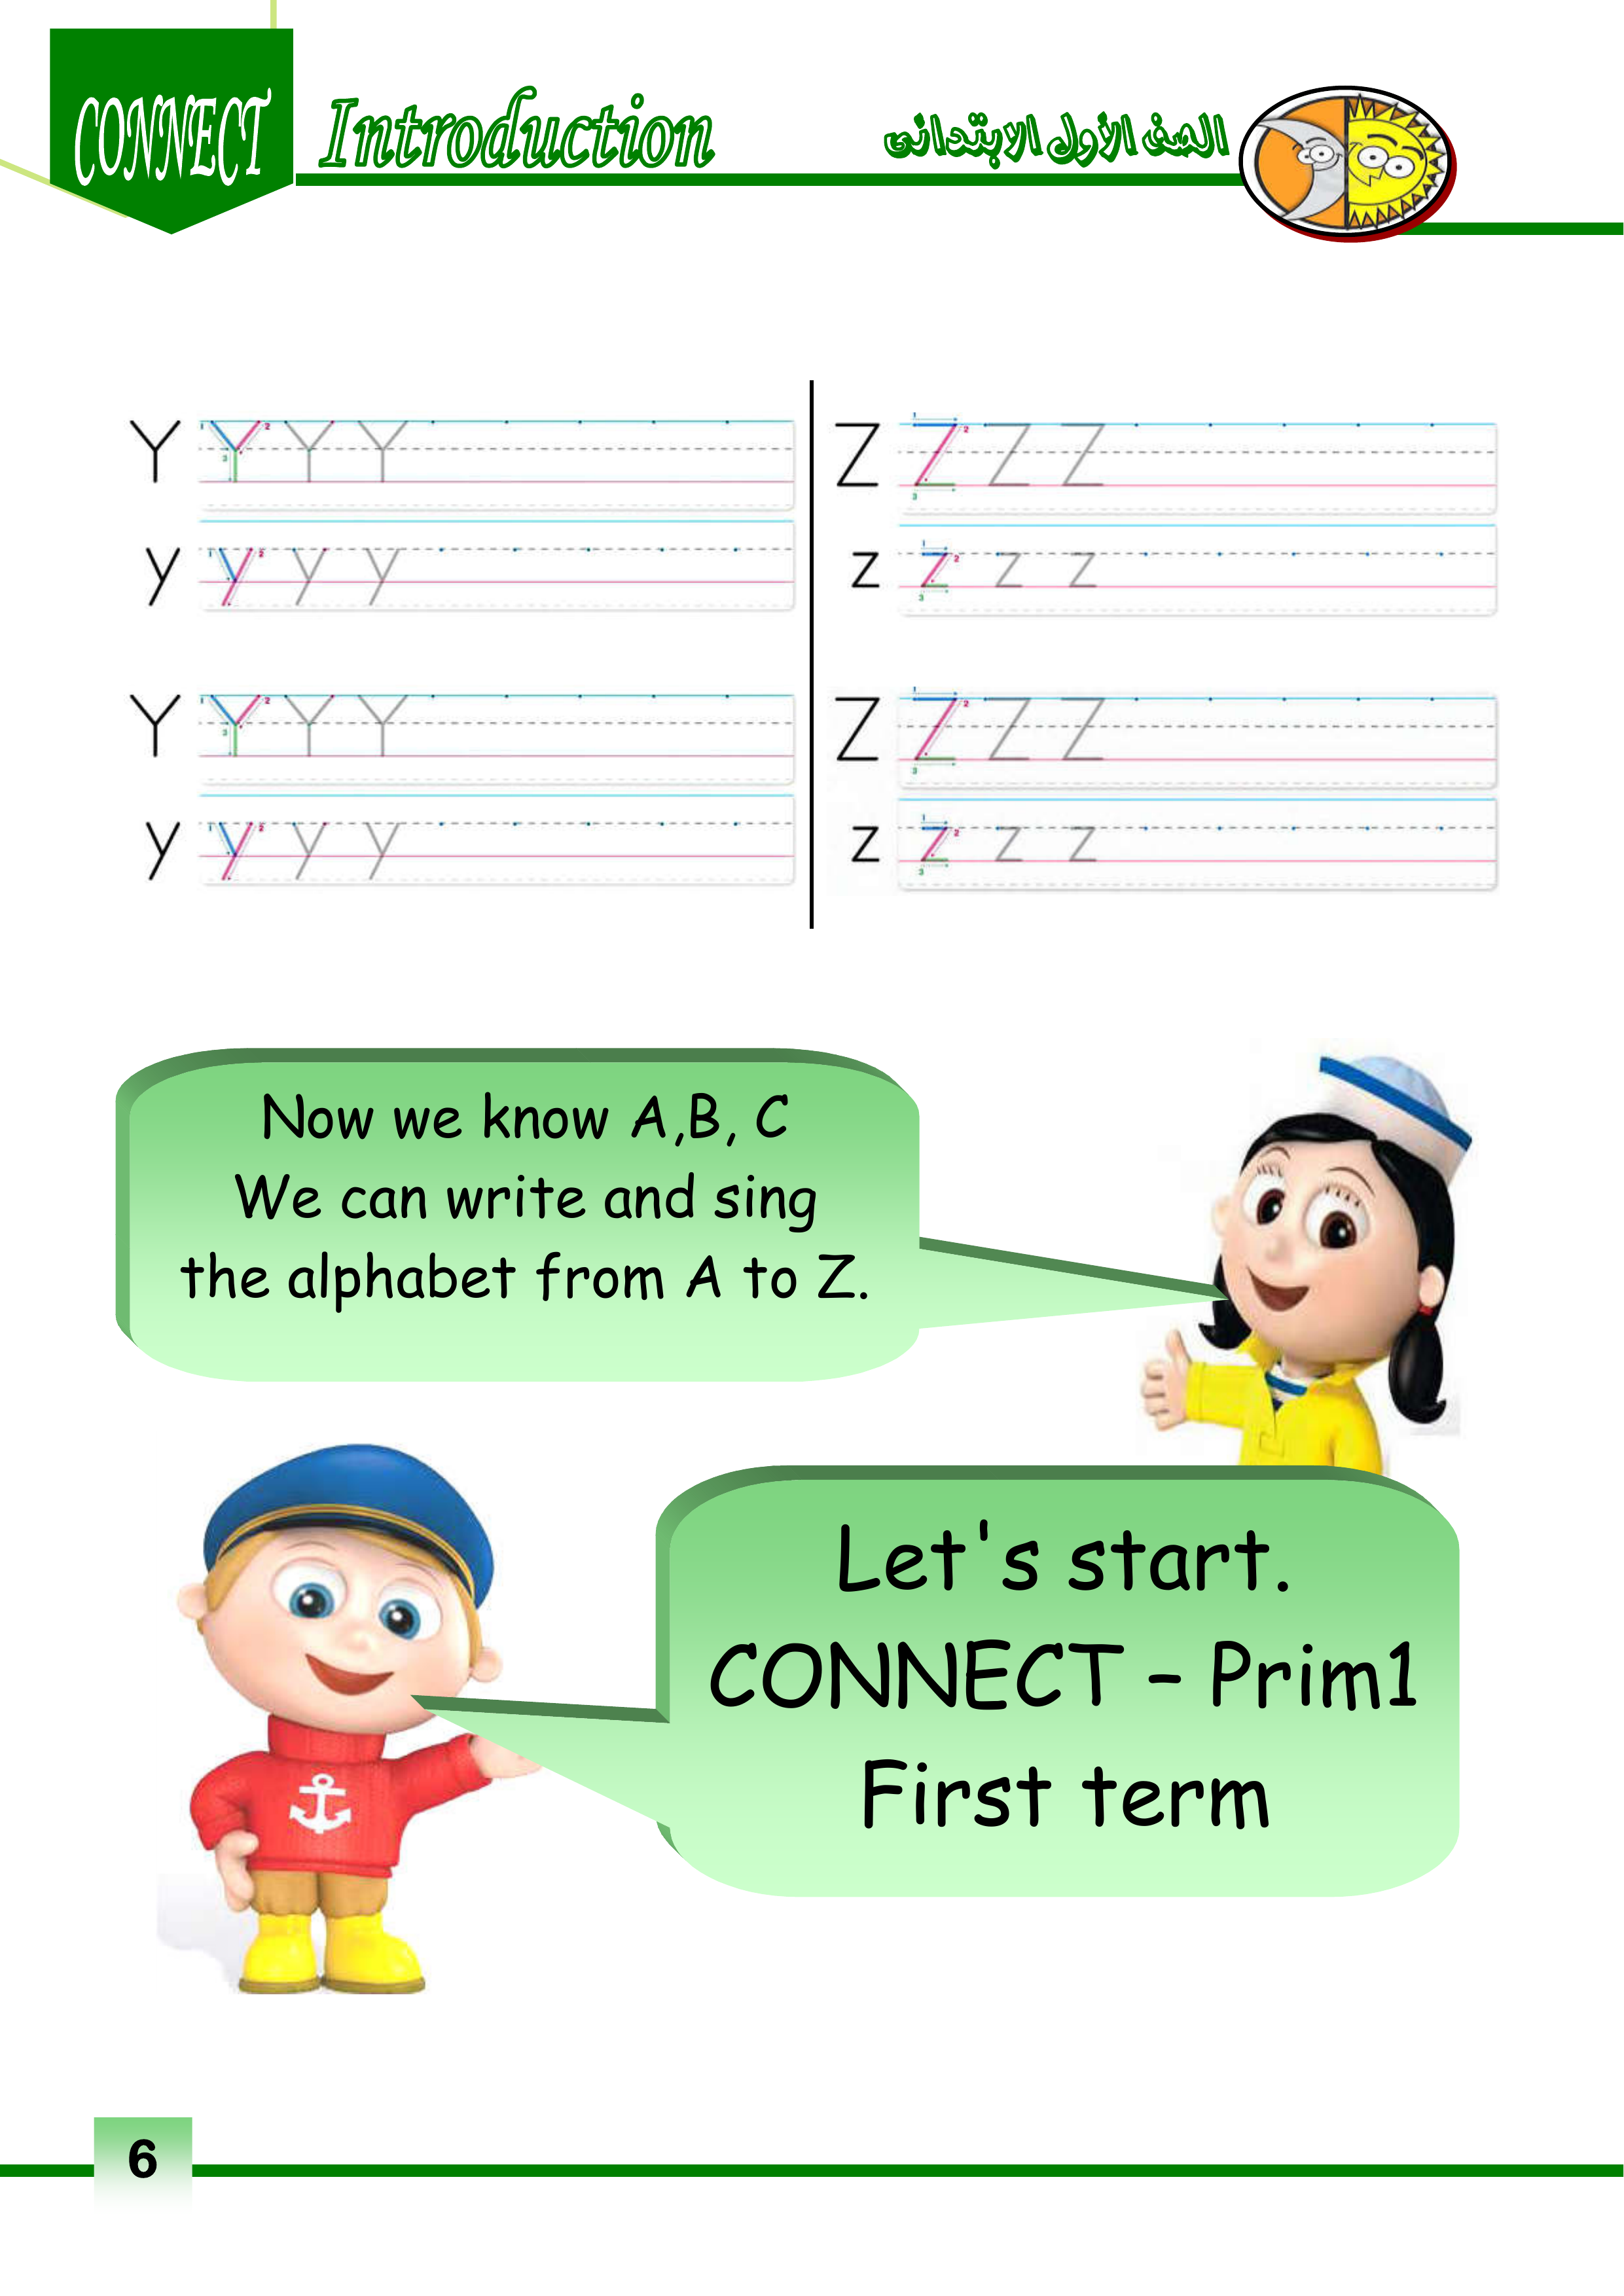 CONNECT
Introduction
الصف الأول الابتدائى
Y Y Y Y
y y y y
Y Y Y Y
y y y y
Z Z Z Z
z z z z
Z Z Z Z
z z z z
Now we know A,B, C
We can write and sing
the alphabet from A to Z.
Let's start.
CONNECT – Prim1
First term
6